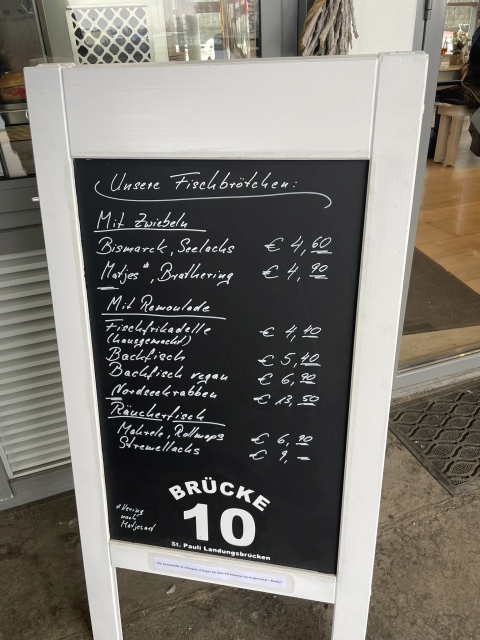 Unsere Fischbrötchen:
Mit Zwiebeln
Bismarck, Seelachs € 4,60
Matjes*, Brathering € 4,90
Mit Remoulade
Fischfrikadelle € 4,40
(hausgemacht)
Backfisch € 5,40
Backfisch vegan € 6,90
Nordseekrabben € 13,50
Räucherfisch
Makrele, Rollmops € 6,90
Stremellachs € 9,–
*Hering
nach
Matjesart
BRÜCKE
10
St. Pauli Landungsbrücken